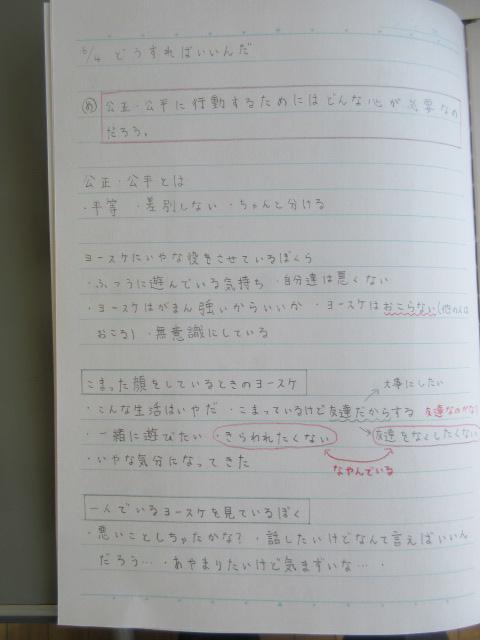 6/4 どうすればいいんだ
め 公正・公平に行動するためにはどんな心が必要なの
だろう。
公正・公平とは
・平等 ・差別しない ・ちゃんと分ける
ヨースケにいやな役をさせているぼくら
・ふつうに遊んでいる気持ち ・自分達は悪くない
・ヨースケはがまん強いからいいか ・ヨースケはおこらない(他の人は
おこる) ・無意識にしている
こまった顔をしているときのヨースケ
大事にしたい
・こんな生活はいやだ ・こまっているけど友達だからする 友達なのかな?
・一緒に遊びたい ・きらわれたくない 友達をなくしたくない
・いやな気分になってきた
なやんでいる
一人でいるヨースケを見ているぼく
・悪いことしちゃたかな? ・話したいけどなんて言えばいいん
だろう… ・あやまりたいけど気まずいな… ・